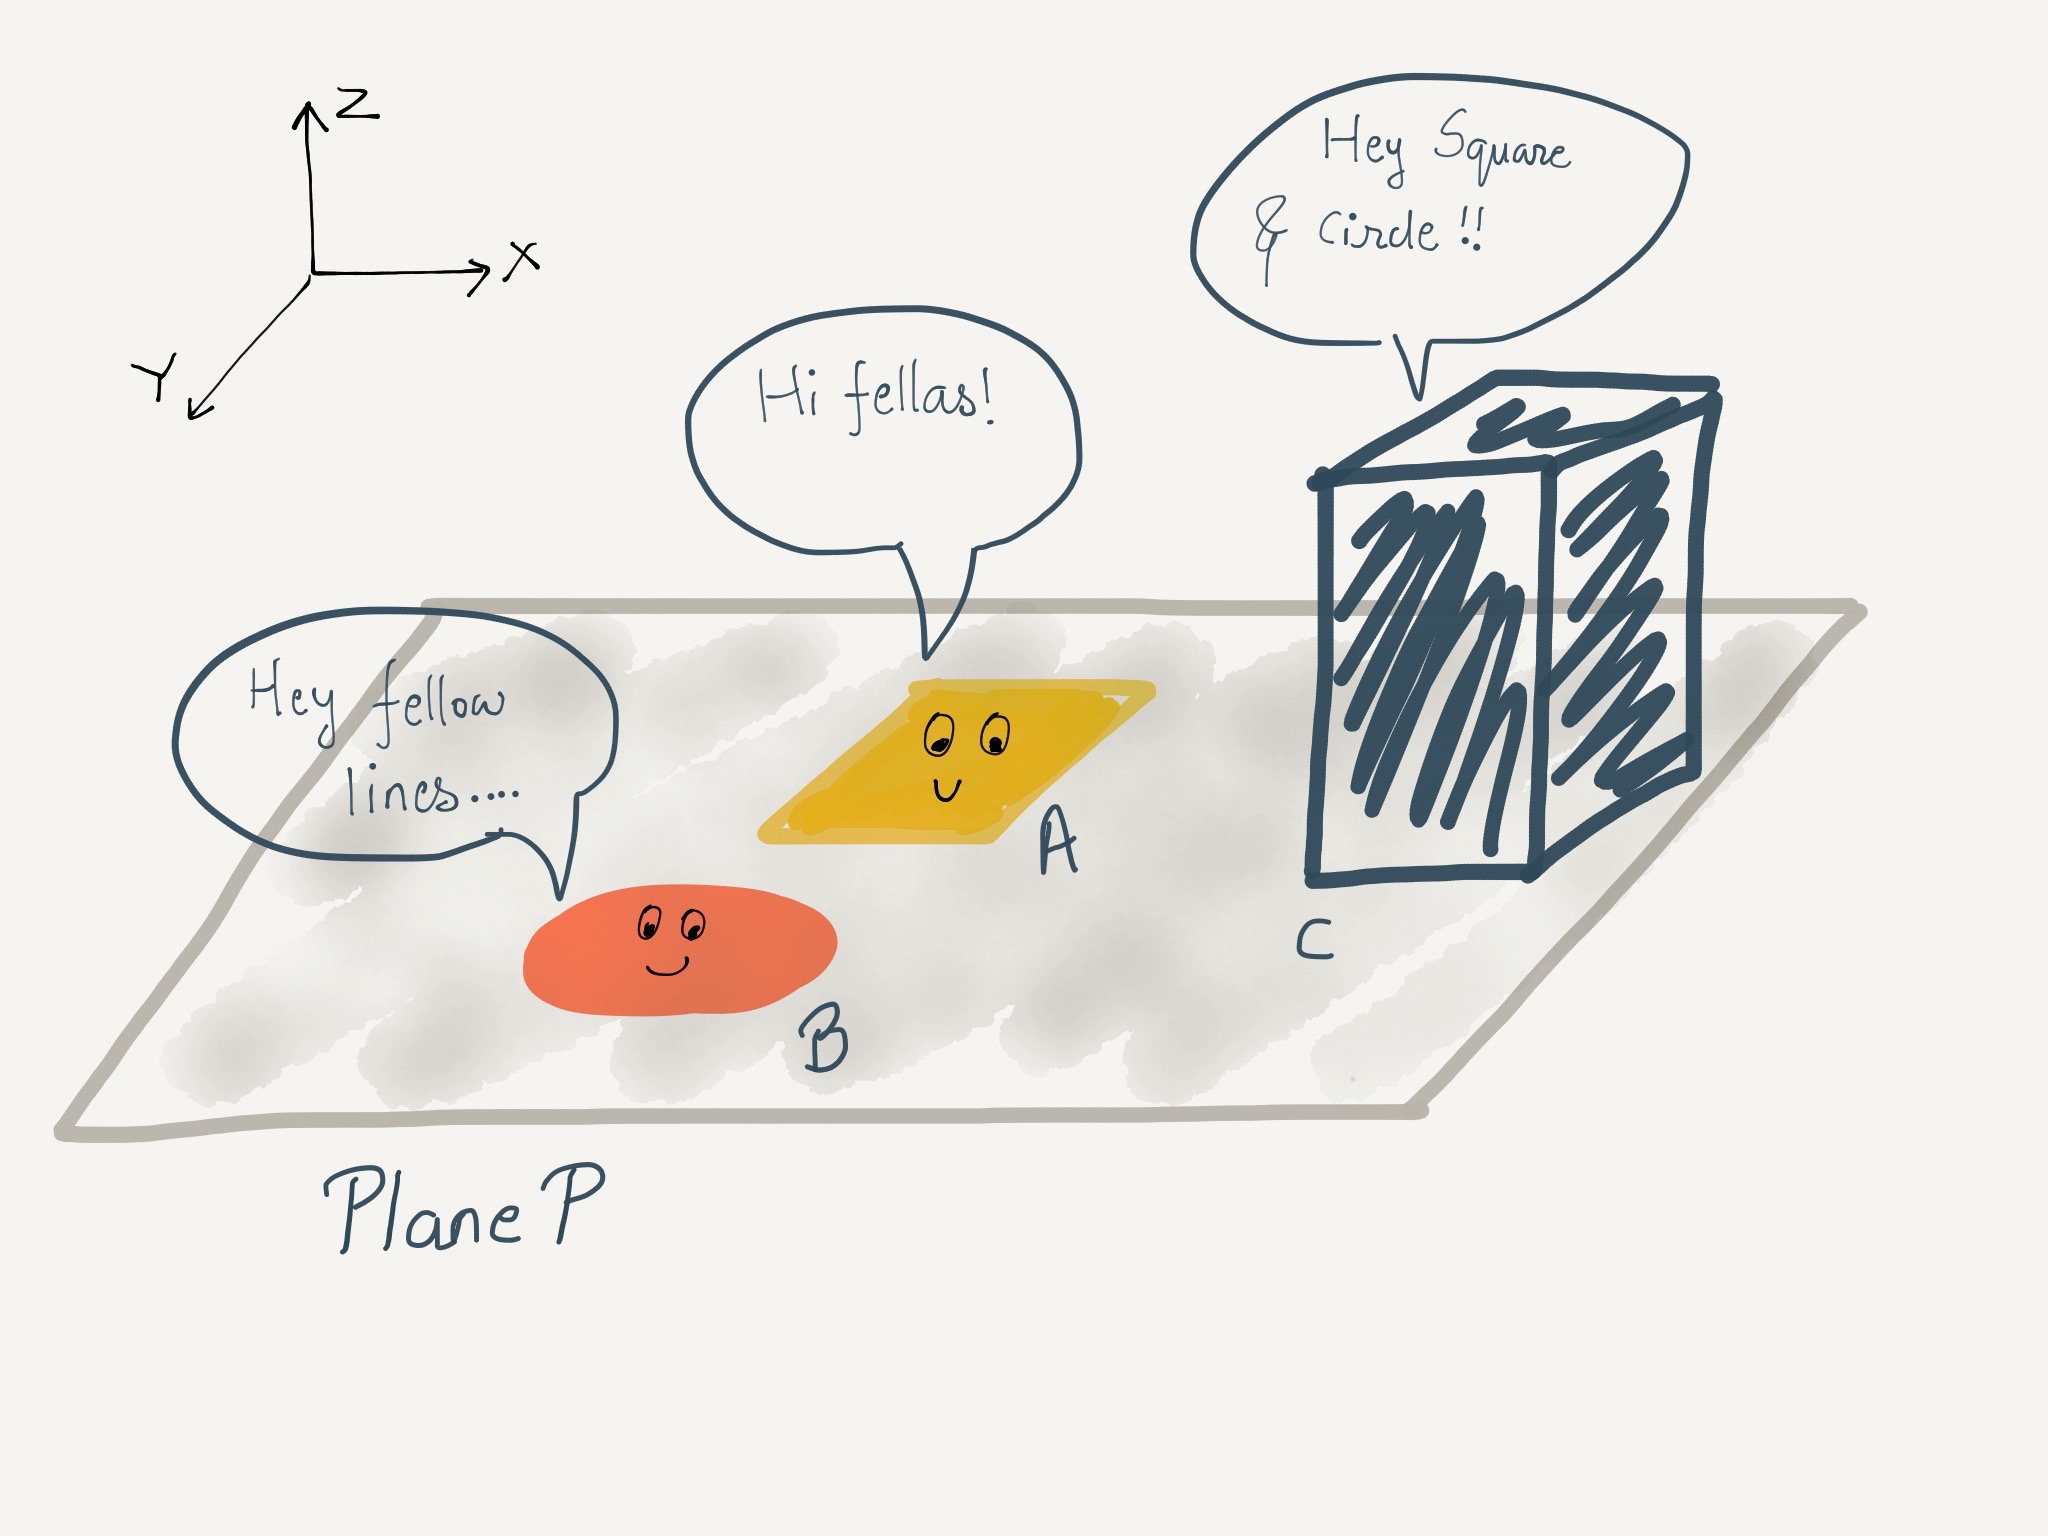 Z
X
Y
Hey Square
& Circle !!
Hi fellas!
Hey fellow
lines....
A
B
C
Plane P